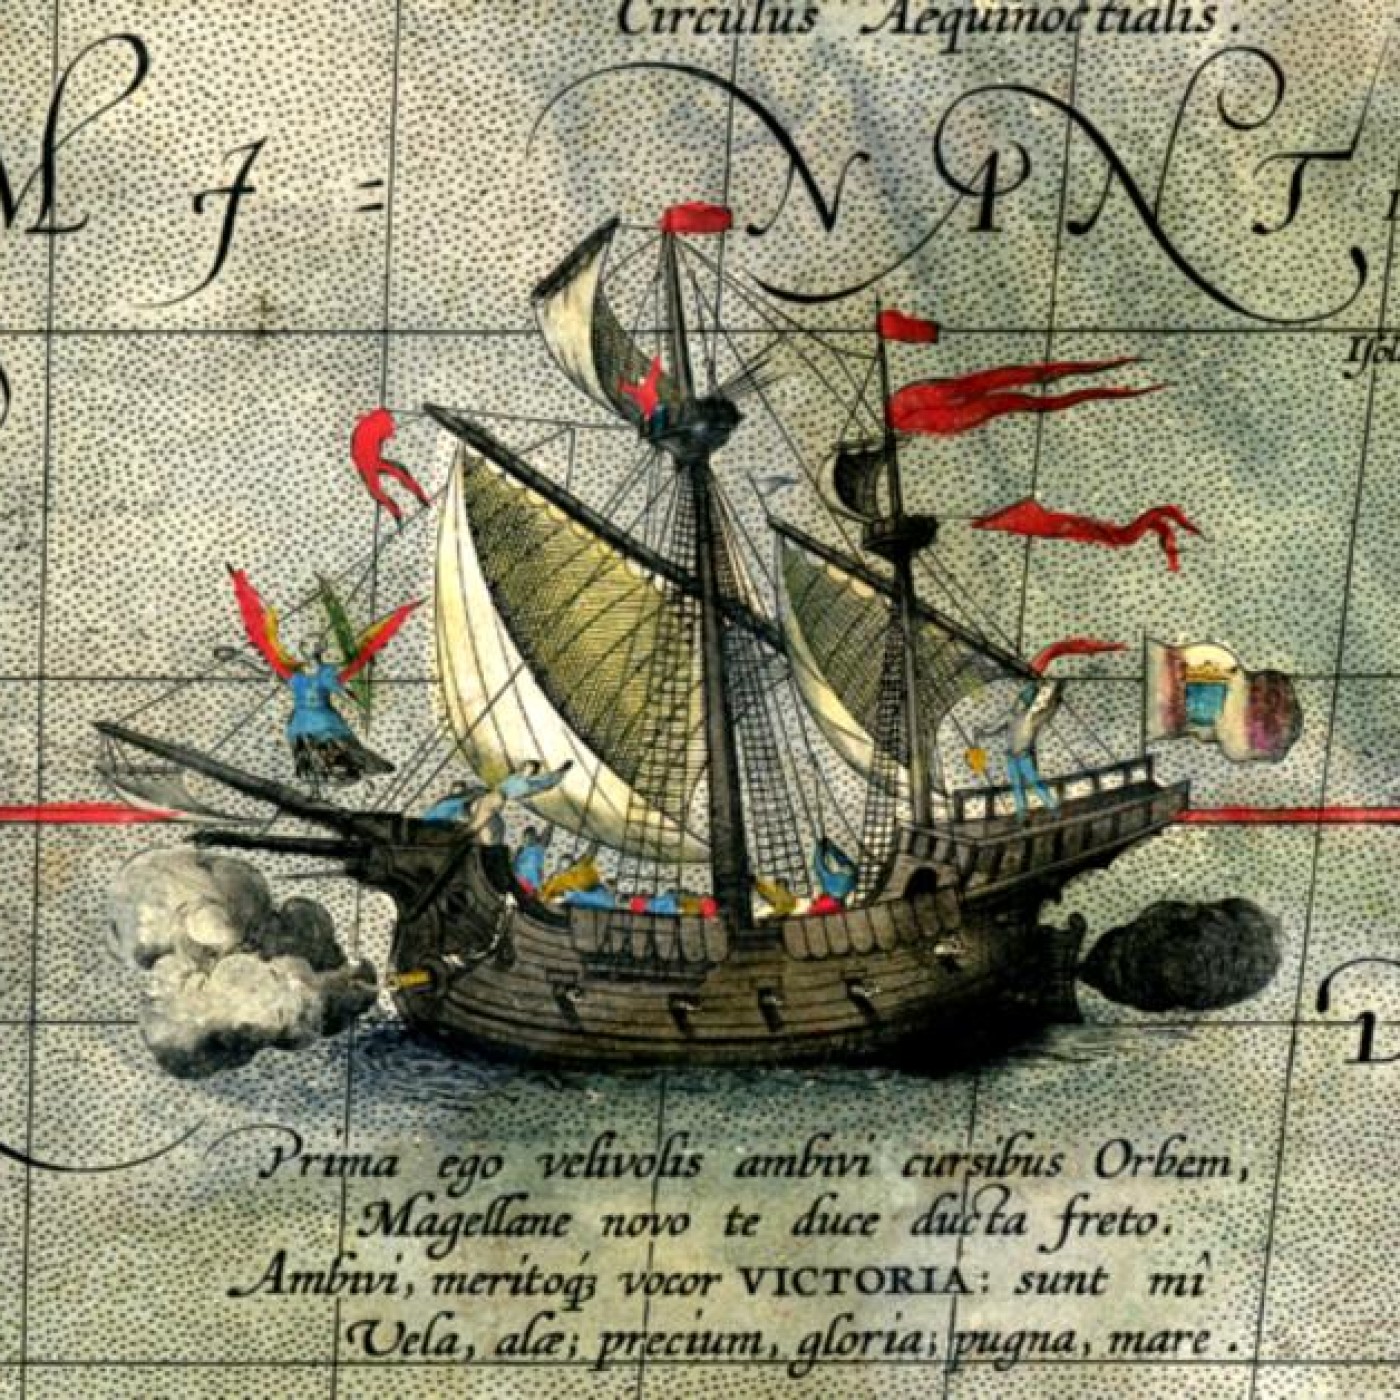 Circulus Aequinoctialis.
M I = N I N T
Prima ego velivolis ambivi cursibus Orbem,
Magellane novo te duce ducta freto.
Ambivi, meritoq́ꝫ vocor VICTORIA: sunt mî
Vela, alæ; precium, gloria; pugna, mare.